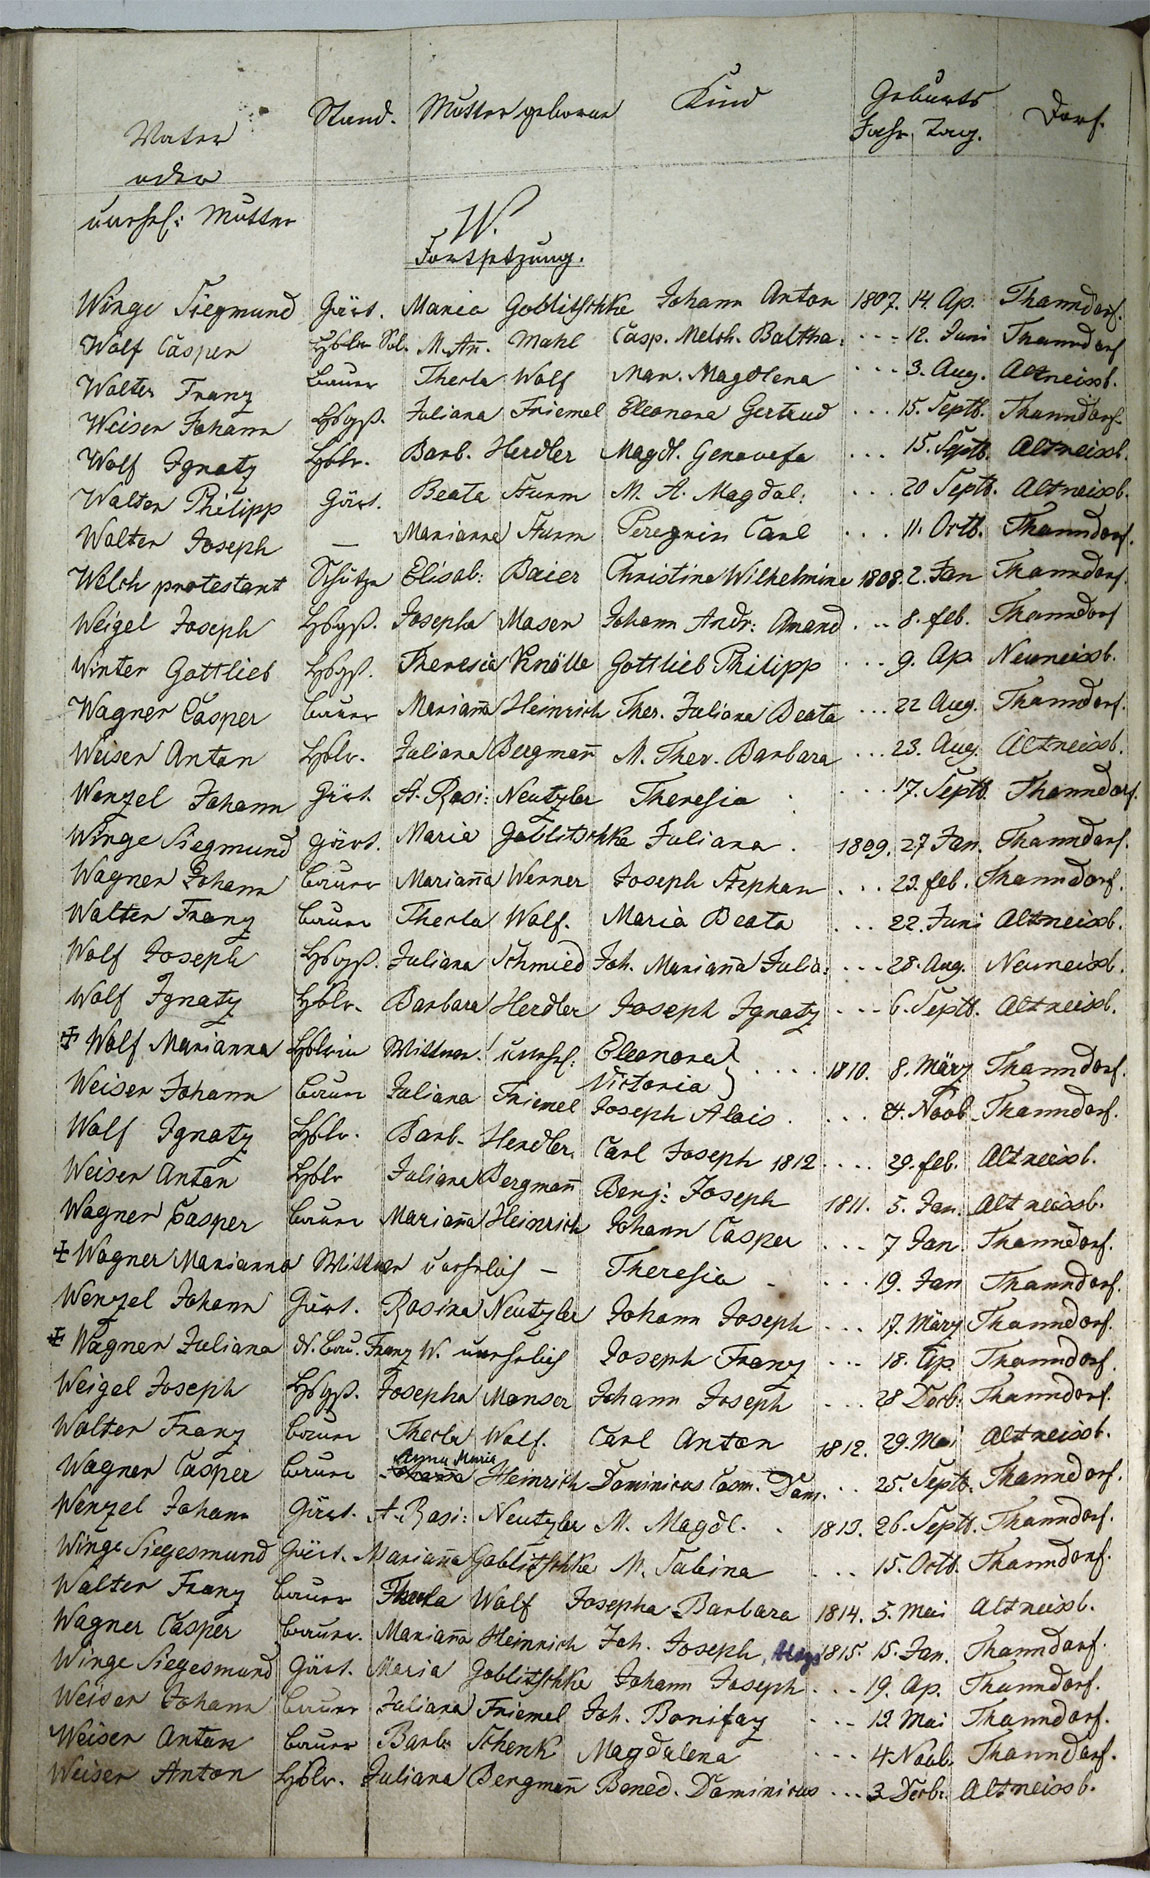 Vater Stand. Mutter geborne Kind Geburts Dorf.
oder Jahr, Tag.
unehl: Mutter
W.
Fortsetzung.
Winge Siegmund Gärt. Maria Goblitschke Johann Anton 1807. 14 Ap. Thanndorf.
Wolf Casper M. Añ. Mahl Casp. Melch. Baltha: --- 12. Juni Thanndorf
Walter Franz bauer Thecla Wolf Mar. Magdlena --- 3. Aug. Altneissb.
Weiser Johann Hbgß. Juliana Friemel Eleonora Gertrud ... 15. Septb. Thanndorf.
Wolf Ignatz Hblr. Barb. Herdler Magdl. Genovefa ... 15. Septb. Altneissb.
Walter Philipp Gärt. Beata Sturm M. A. Magdal: ... 20 Septb. Altneissb.
Walter Joseph — Marianna Sturm Peregrin Carl ... 11. Octb. Thanndorf.
Welch protestant Schütze Elisab: Baier Christina Wilhelmine 1808. 2. Jan Thanndorf.
Weigel Joseph Hbgß. Josepha Maser Johann Andr: Amand ... 8. feb. Thanndorf
Winter Gottlieb Hbgß. Theresia Knölle Gottlieb Philipp ... 9. Ap. Neuneissb.
Wagner Casper bauer Mariaña Heinrich Ther. Juliana Beata ... 22 Aug. Thanndorf.
Weiser Anton Hblr. Juliana Bergmañ M. Ther. Barbara ... 23. Aug. Altneissb.
Wenzel Johann Gärt. A. Rosi: Neutzler Theresia ... 17. Septb. Thanndorf.
Winge Siegmund Gärt. Maria Goblitschke Juliana . 1809. 27 Jan. Thanndorf.
Wagner Johann bauer Mariaña Werner Joseph Stephan ... 23. feb. Thanndorf.
Walter Franz bauer Thecla Wolf. Maria Beata ... 22. Juni Altneissb.
Wolf Joseph Hbgß. Juliana Schmied Joh. Mariaña Julia: ... 28. Aug. Neuneissb.
Wolf Ignatz Hblr. Barbara Herdler Joseph Ignatz --- 6. Septb. Altneissb.
✠ Wolf Marianna Hblrin Wittwe. unehl: Eleonora } .... 1810. 8. März Thanndorf.
Victoria }
Weiser Johann bauer Juliana Friemel Joseph Alois . ... 4. Novb Thanndorf.
Wolf Ignatz Hblr. Barb. Herdler. Carl Joseph 1812 .... 29. feb. Altneissb.
Weiser Anton Hblr Juliana Bergmañ Benj: Joseph 1811. 5. Jan. Altneissb.
Wagner Casper bauer Mariaña Heinrich Johann Casper ... 7 Jan Thanndorf.
✠ Wagner Marianna Wittwer unehrlich — Theresia - ... 19. Jan Thanndorf.
Wenzel Johann Gärt. Rosina Neutzler Johann Joseph ... 17. März Thanndorf.
✠ Wagner Juliana Franz W. unehrlich Joseph Franz ... 18. Ap. Thanndorf.
Weigel Joseph Hbgß. Josepha Manser Johann Joseph ... 28 Decb: Thanndorf.
Walter Franz bauer Thecla Wolf. Carl Anton 1812. 29. Mai Altneissb.
Anna Maria
Wagner Casper bauer Heinrich Dominicus Dam. ... 25. Septb. Thanndorf.
Wenzel Johann Gärt. A. Rosi: Neutzler M. Magdl. . 1813. 26. Septb. Thanndorf.
Winge Siegesmund Gärt. Mariaña Goblitschke M. Sabina ... 15. Octb. Thanndorf.
Walter Franz bauer Thecla Wolf Josepha Barbara 1814. 5. Mai Altneissb.
Wagner Casper bauer. Mariaña Heinrich Joh. Joseph, 1815. 15. Jan. Thanndorf.
Winge Siegesmund Gärt. Maria Goblitschke Johann Joseph ... 19. Ap. Thanndorf.
Weiser Johann bauer Juliana Friemel Joh. Bonifaz ... 12 Mai Thanndorf.
Weiser Anton bauer Barb: Schenk Magdalena ... 4 Novb. Thanndorf.
Weiser Anton Hblr. Juliana Bergmañ Bened. Dominicus ... 3 Decb: Altneissb.